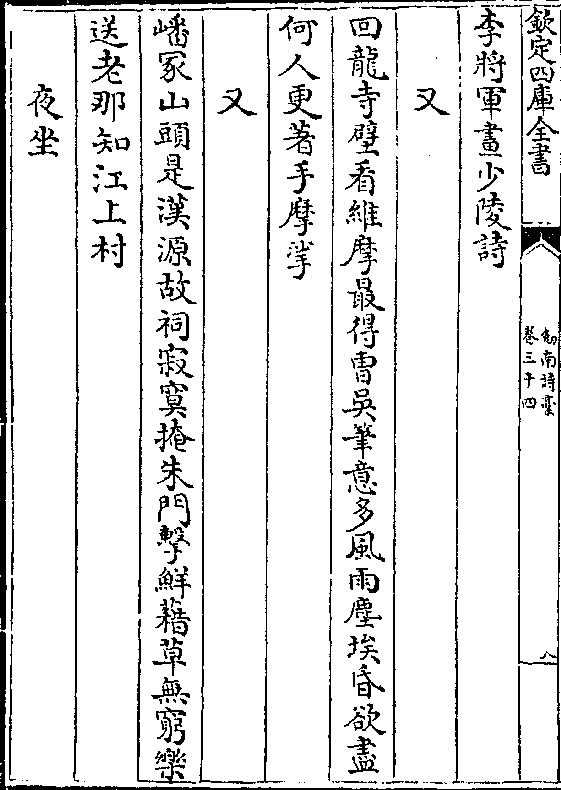 欽定四庫全書
劒南詩槀
卷三十四
八
李將軍畫少陵詩
又
回龍寺壁看維摩最得曹吳筆意多風雨塵埃昏欲盡
何人更著手摩挲
又
嶓冢山頭是漢源故祠寂寞掩朱門擊鮮藉草無窮樂
送老那知江上村
夜坐